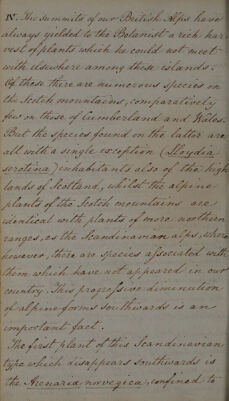 IV. The summits of our British Alps have
always yielded to the Botanist a rich har-
vest of plants which he could not meet
with elsewhere among these islands.
Of these there are numerous species in
the Scotch mountains, comparatively
few in those of Cumberland and Wales.
But the species found on the latter are
all with a single exception (Lloydia
serotina) inhabitants also of the high-
lands of Scotland, whilst the alpine
plants of the Scotch mountains are
identical with plants of more northern
ranges, as the Scandinavian alps, where
however, there are species associated with
them which have not appeared in our
country. This progressive diminution
of alpine forms southwards is an
important fact.
The first plant of this Scandinavian
type which disappears southwards is
the Arenaria norvegica, confined to